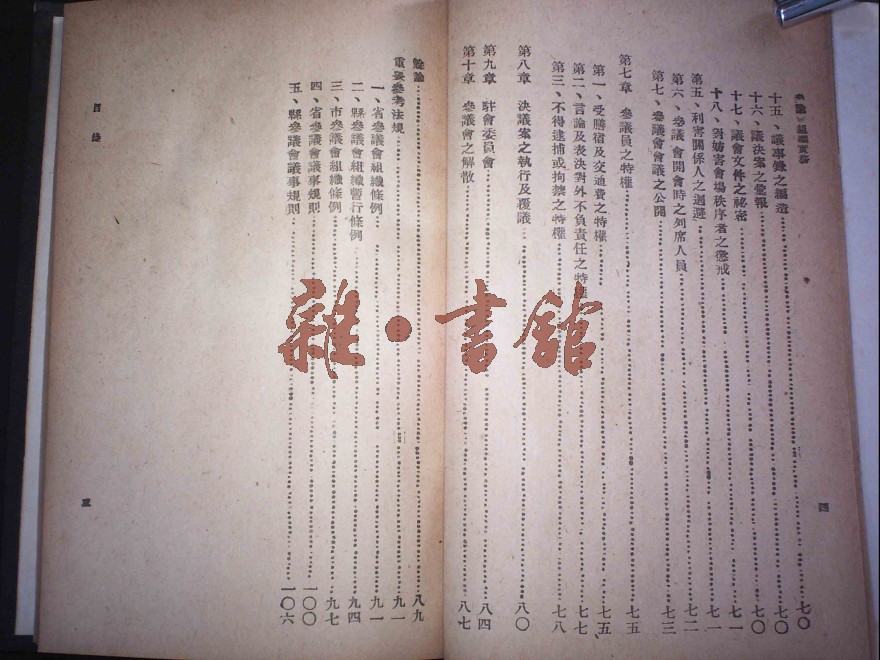 十五、議事錄之編造……七〇
十六、議決案之彙報……七〇
十七、議會文件之祕密……七一
十八、對妨害會場秩序者之懲戒……七一
第五、利害關係人之迴避……七二
第六、參議會開會時之列席人員……七三
第七、參議會會議之公開……七三
第七章 參議員之特權……七五
第一、受膳宿及交通費之特權……七五
第二、言論及表決對外不負責任之特權……七七
第三、不得逮捕或拘禁之特權……七八
第八章 決議案之執行及覆議……八〇
第九章 駐會委員會……八四
第十章 參議會之解散……八七
四
餘論……八九
重要參考法規……九一
一、省參議會組織條例……九一
二、縣參議會組織暫行條例……九四
三、市參議會組織條例……九七
四、省參議會議事規則……一〇〇
五、縣參議會議事規則……一〇六
目錄
五
雜·書館